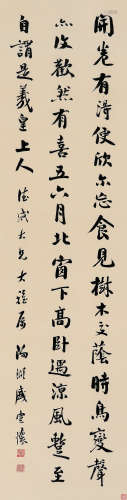 開卷有得便欣尔忘食見樹木交蔭時鳥變聲
亦復歡然有喜五六月北窗下高卧遇涼風暫至
自謂是羲皇上人
大兄大